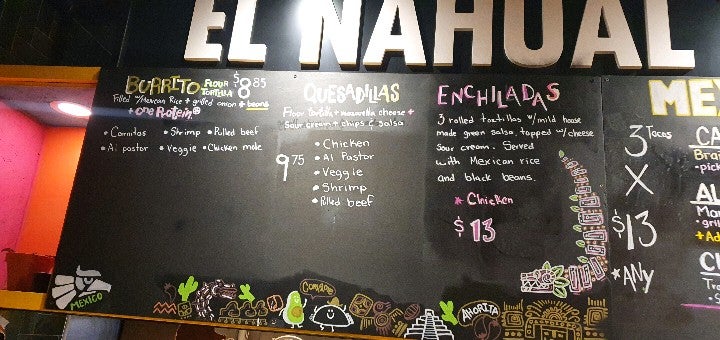 EL NAHUAL
BURRITO FLOUR TORTILLA $8.85
Filled w/Mexican Rice + grilled onion + beans
+ one Protein
• Carnitas • Shrimp • Pulled beef
• Al pastor • Veggie • Chicken mole
QUESADILLAS
Flour tortilla + mozzarella cheese +
Sour cream + chips & salsa
9.75
• Chicken
• Al Pastor
• Veggie
• Shrimp
• Pulled beef
ENCHILADAS
3 rolled tortillas w/mild house
made green salsa, topped w/cheese
sour cream. Served
with Mexican rice
and black beans.
* Chicken
$13
MEX
3 Tacos
X
$13
*ANY
CA
Bra
-pick
AL
Mar
-gril
+Ad
MEXICO
AHORITA